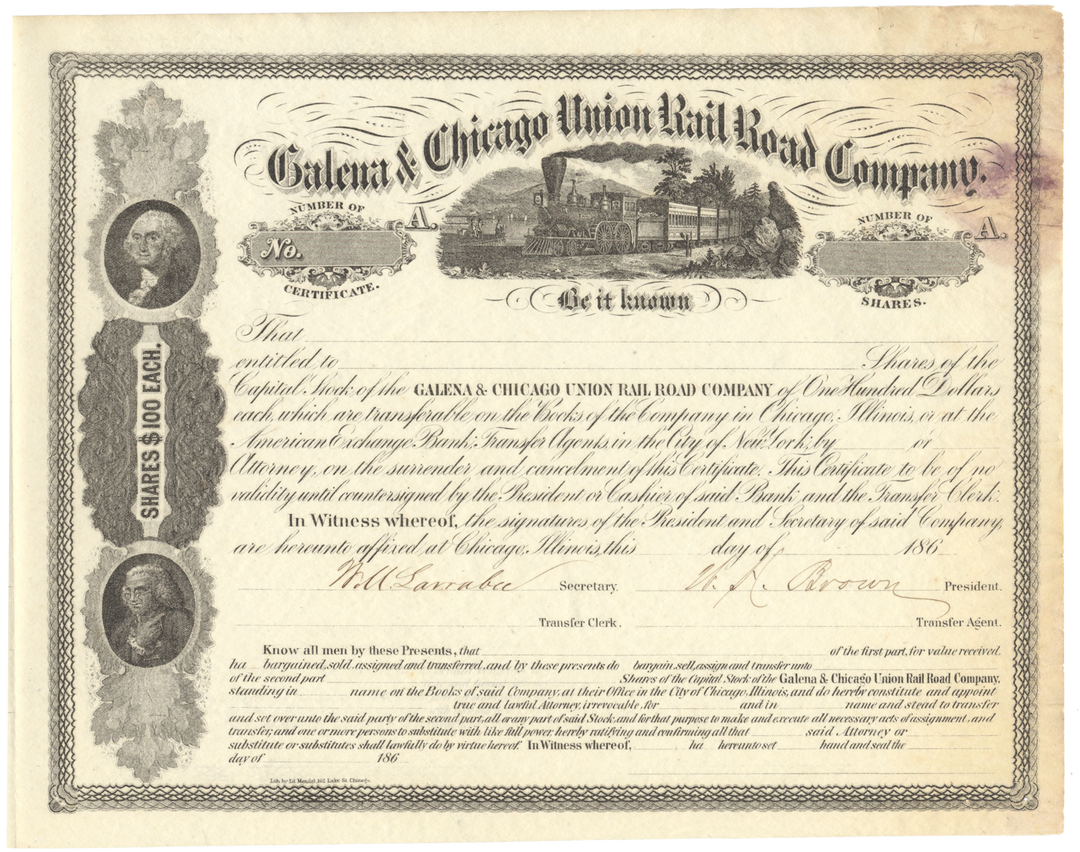 Galena & Chicago Union Rail Road Company.
NUMBER OF
A.
NUMBER OF
A.
No.
CERTIFICATE.
SHARES.
Be it known
SHARES $100 EACH.
That
entitled to Shares of the
Capital Stock of the GALENA & CHICAGO UNION RAIL ROAD COMPANY of One Hundred Dollars
each, which are transferable on the Books of the Company in Chicago, Illinois, or at the
American Exchange Bank, Transfer Agents, in the City of New York, by or
Attorney, on the surrender and cancelment of this Certificate. This Certificate to be of no
validity until countersigned by the President or Cashier of said Bank and the Transfer Clerk.
In Witness whereof, the signatures of the President and Secretary of said Company,
are hereunto affixed, at Chicago, Illinois, this day of 186
W. M. Larrabee Secretary. W. H. Brown President.
Transfer Clerk. Transfer Agent.
Know all men by these Presents, that of the first part, for value received,
ha bargained, sold, assigned and transferred, and by these presents do bargain, sell, assign and transfer unto
of the second part Shares of the Capital Stock of the Galena & Chicago Union Rail Road Company,
standing in name on the Books of said Company, at their Office in the City of Chicago, Illinois, and do hereby constitute and appoint
true and lawful Attorney, irrevocable, for and in name and stead to transfer
and set over unto the said party of the second part, all or any part of said Stock, and for that purpose to make and execute all necessary acts of assignment, and
transfer, and one or more persons to substitute with like full power, hereby ratifying and confirming all that said Attorney or
substitute or substitutes shall lawfully do by virtue hereof. In Witness whereof, ha hereunto set hand and seal the
day of 186
Lith. by Ed. Mendel 162 Lake St. Chicago.